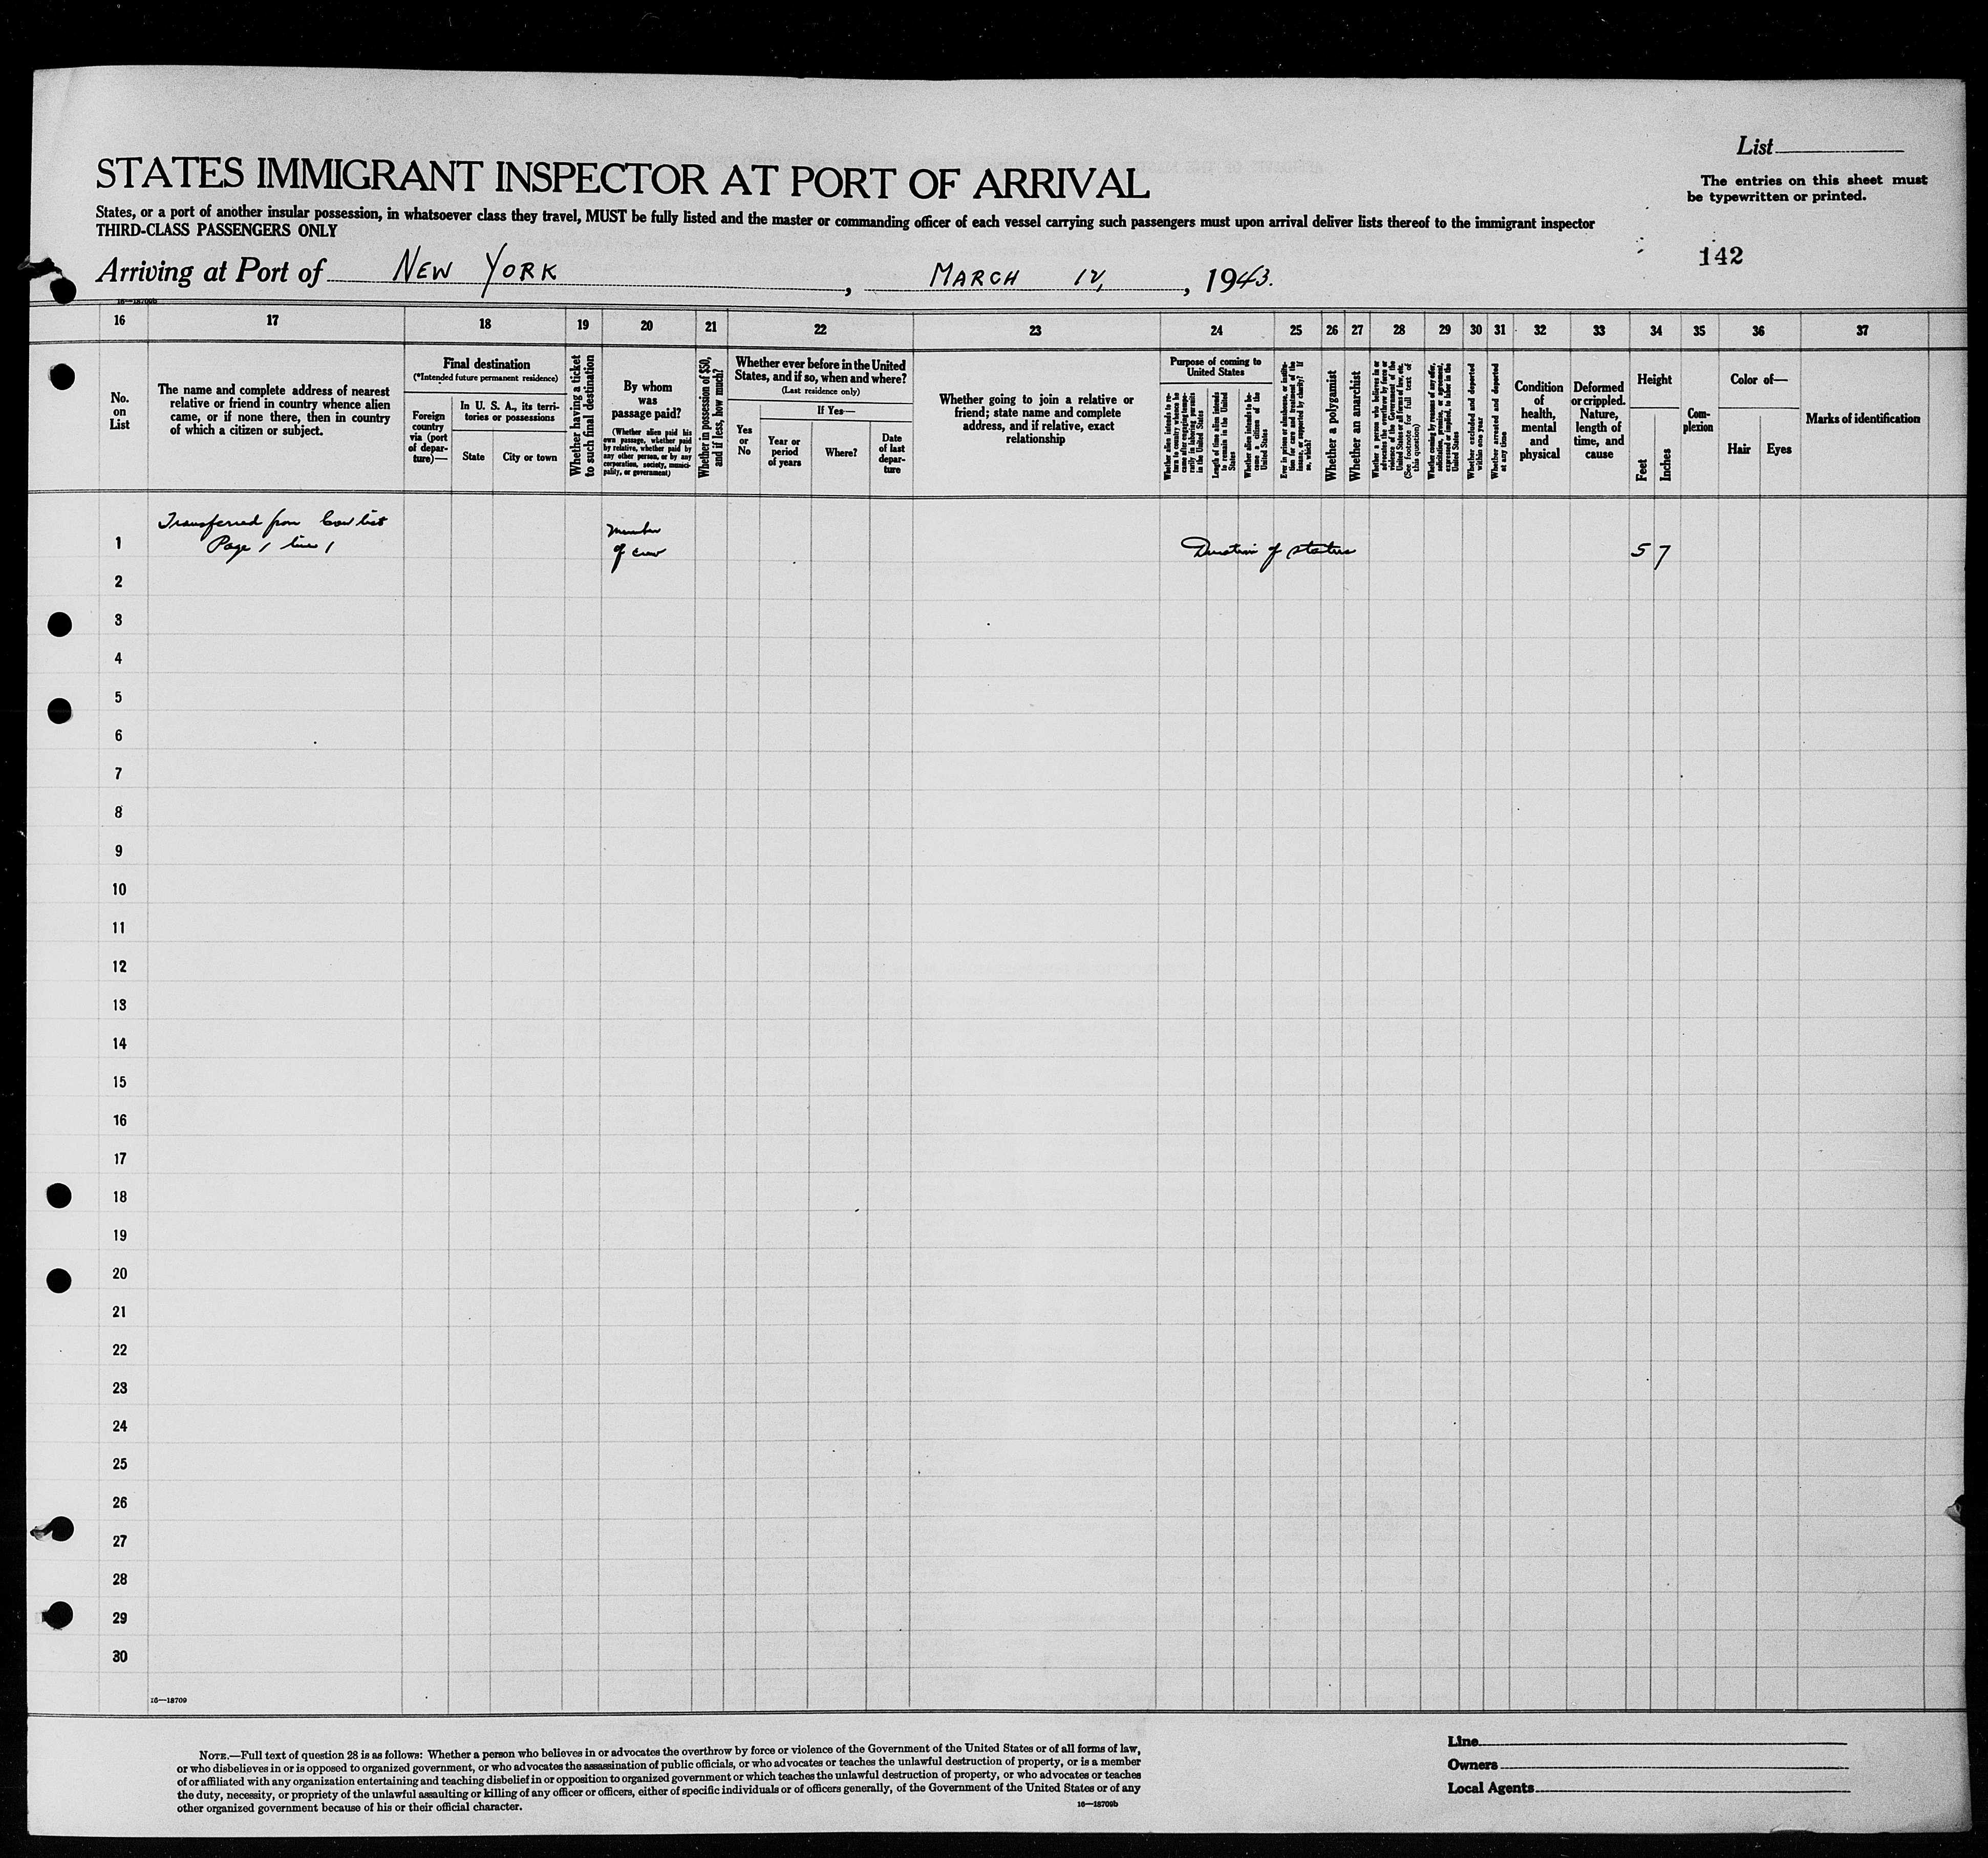 List
The entries on this sheet must
be typewritten or printed.
STATES IMMIGRANT INSPECTOR AT PORT OF ARRIVAL
States, or a port of another insular possession, in whatsoever class they travel, MUST be fully listed and the master or commanding officer of each vessel carrying such passengers must upon arrival deliver lists thereof to the immigrant inspector
THIRD-CLASS PASSENGERS ONLY
142
Arriving at Port of NEW YORK , MARCH 12, , 1943.
16—18709b
16 17 18 19 20 21 22 23 24 25 26 27 28 29 30 31 32 33 34 35 36 37
No.
on
List
The name and complete address of nearest
relative or friend in country whence alien
came, or if none there, then in country
of which a citizen or subject.
Final destination
(*Intended future permanent residence)
Foreign
country
via (port
of depar-
ture)—
In U. S. A., its terri-
tories or possessions
State
City or town
Whether having a ticket
to such final destination
By whom
was
passage paid?
(Whether alien paid his
own passage, whether paid
by relative, whether paid by
any other person, or by any
corporation, society, munici-
pality, or government)
Whether in possession of $50,
and if less, how much?
Whether ever before in the United
States, and if so, when and where?
(Last residence only)
Yes
or
No
If Yes—
Year or
period
of years
Where?
Date
of last
depar-
ture
Whether going to join a relative or
friend; state name and complete
address, and if relative, exact
relationship
Purpose of coming to
United States
Whether alien intends to re-
turn to country whence he
came after engaging tempo-
rarily in laboring pursuits
in the United States
Length of time alien intends
to remain in the United
States
Whether alien intends to be-
come a citizen of the
United States
Ever in prison or almshouse, or institu-
tion for care and treatment of the
insane, or supported by charity? If
so, which?
Whether a polygamist
Whether an anarchist
Whether a person who believes in or
advocates the overthrow by force or
violence of the Government of the
United States or all forms of law, etc.
(See footnote for full text of
this question)
Whether coming by reason of any offer,
solicitation, promise, or agreement,
expressed or implied, to labor in the
United States
Whether excluded and deported
within one year
Whether arrested and deported
at any time
Condition
of
health,
mental
and
physical
Deformed
or crippled.
Nature,
length of
time, and
cause
Height
Feet
Inches
Com-
plexion
Color of—
Hair
Eyes
Marks of identification
Transferred from Crew list
Page 1 line 1
Member
of crew
Duration of status
5 7
1
2
3
4
5
6
7
8
9
10
11
12
13
14
15
16
17
18
19
20
21
22
23
24
25
26
27
28
29
30
16—18709
NOTE.—Full text of question 28 is as follows: Whether a person who believes in or advocates the overthrow by force or violence of the Government of the United States or of all forms of law,
or who disbelieves in or is opposed to organized government, or who advocates the assassination of public officials, or who advocates or teaches the unlawful destruction of property, or is a member
of or affiliated with any organization entertaining and teaching disbelief in or opposition to organized government or which teaches the unlawful destruction of property, or who advocates or teaches
the duty, necessity, or propriety of the unlawful assaulting or killing of any officer or officers, either of specific individuals or of officers generally, of the Government of the United States or of any
other organized government because of his or their official character.
16—18709b
Line
Owners
Local Agents